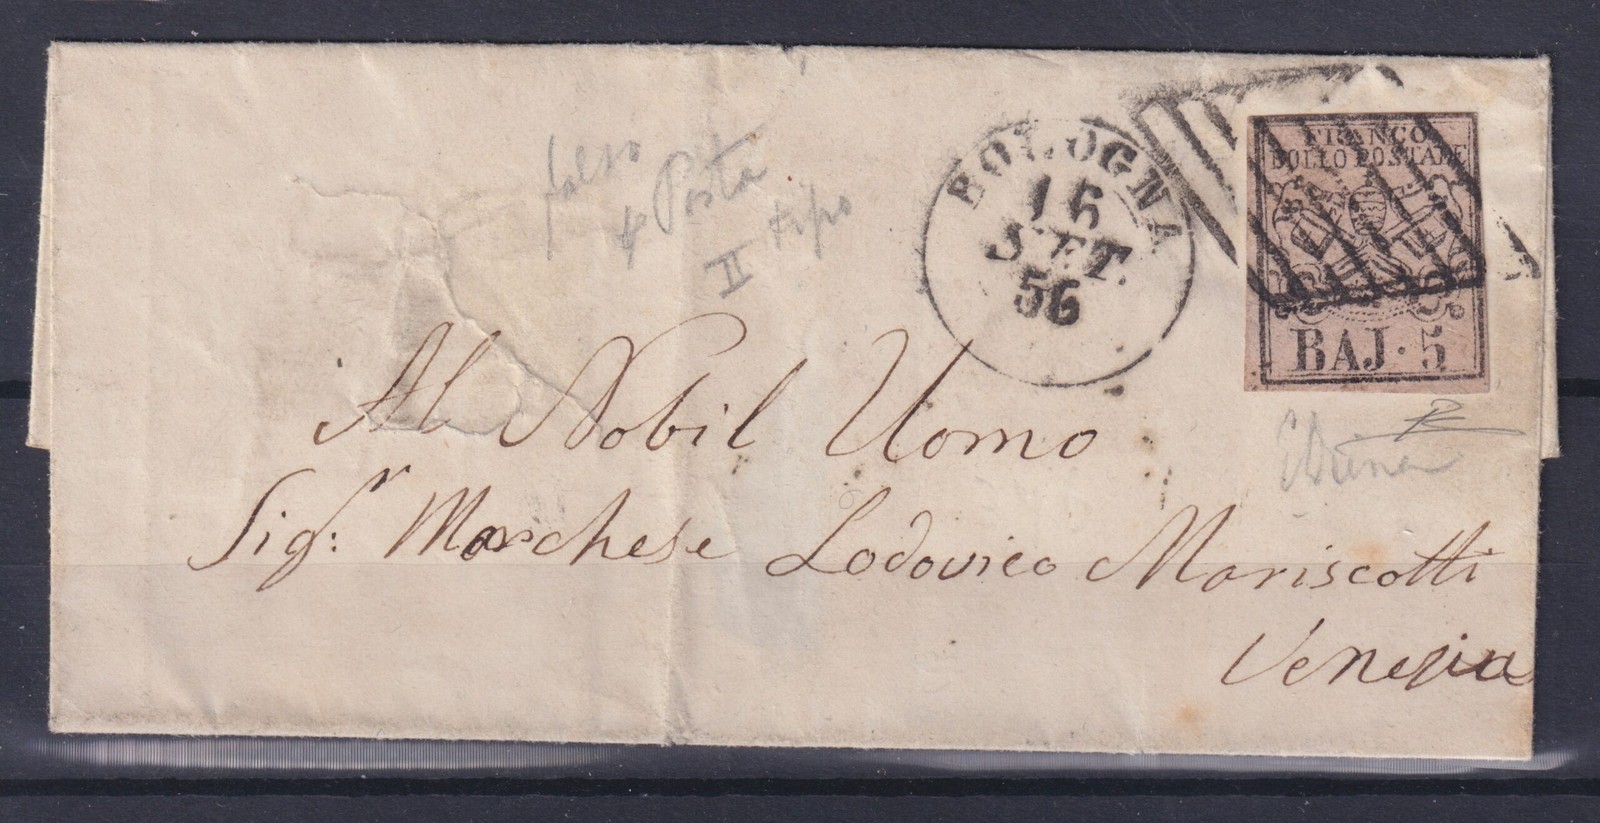 falso
x Posta
II tipo
BOLOGNA
16
SET.
56
FRANCO
BOLLO POSTALE
BAJ · 5
Al Nobil Uomo
Sig.r: Marchese Lodovico Mariscotti
Venezia